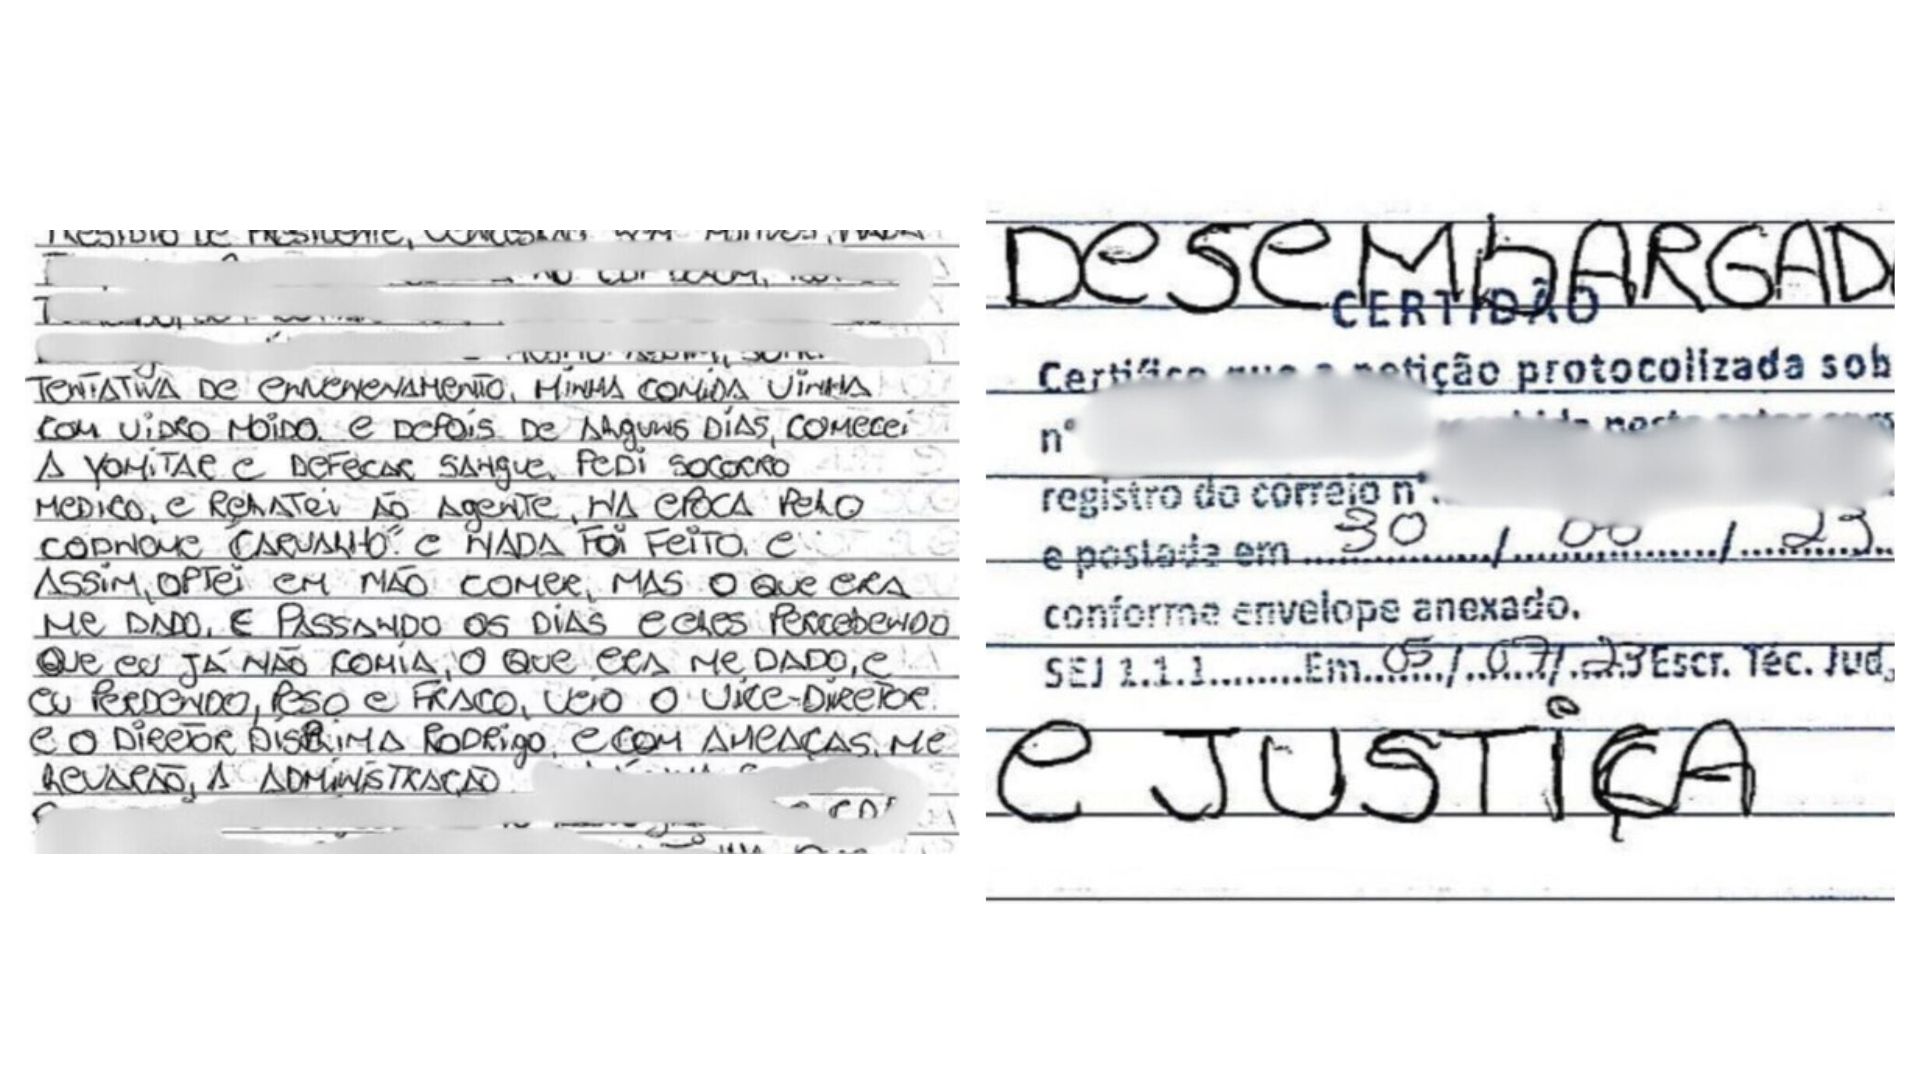 PRESÍDIO DE PRESIDENTE,
TENTATIVA DE ENVENENAMENTO, MINHA COMIDA VINHA
COM VIDRO MOIDO. E DEPOIS DE ALGUNS DIAS, COMECEI
A VOMITAR E DEFECAR SANGUE. PEDI SOCORRO
MEDICO, E RELATEI AO AGENTE, NA EPOCA PELO
CODNOME "CARVALHO" E NADA FOI FEITO. E
ASSIM, OPTEI EM NÃO COMER, MAS O QUE ERA
ME DADO. E PASSANDO OS DIAS E ELES PERCEBENDO
QUE EU JÁ NÃO COMIA, O QUE ERA ME DADO, E
EU PERDENDO, PESO E FRACO, VEIO O VICE-DIRETOR
E O DIRETOR RODRIGO, E COM AMEAÇAS, ME
A ADMINISTRAÇÃO
DESEMBARGADO
CERTIDÃO
Certifico que a petição protocolizada sob
n°
registro do correio n°.
e postada em 30 / / 23
conforme envelope anexado.
SEJ 1.1.1........Em 05/.07/.23 Escr. Téc. Jud,
E JUSTIÇA